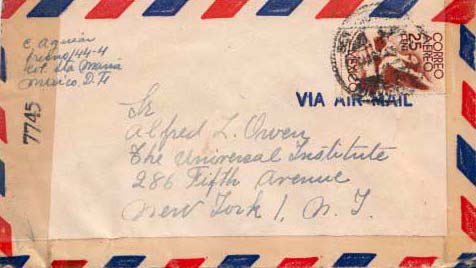 C. Aguiar
Fresno 144-4
Col. Sta Maria
Mexico. D. F.
7745
CORREO
AEREO
25
MEXICO
VIA AIR MAIL
Sr
Alfred L. Owen
The Universal Institute
286 Fifth Avenue
New York 1, N. Y.